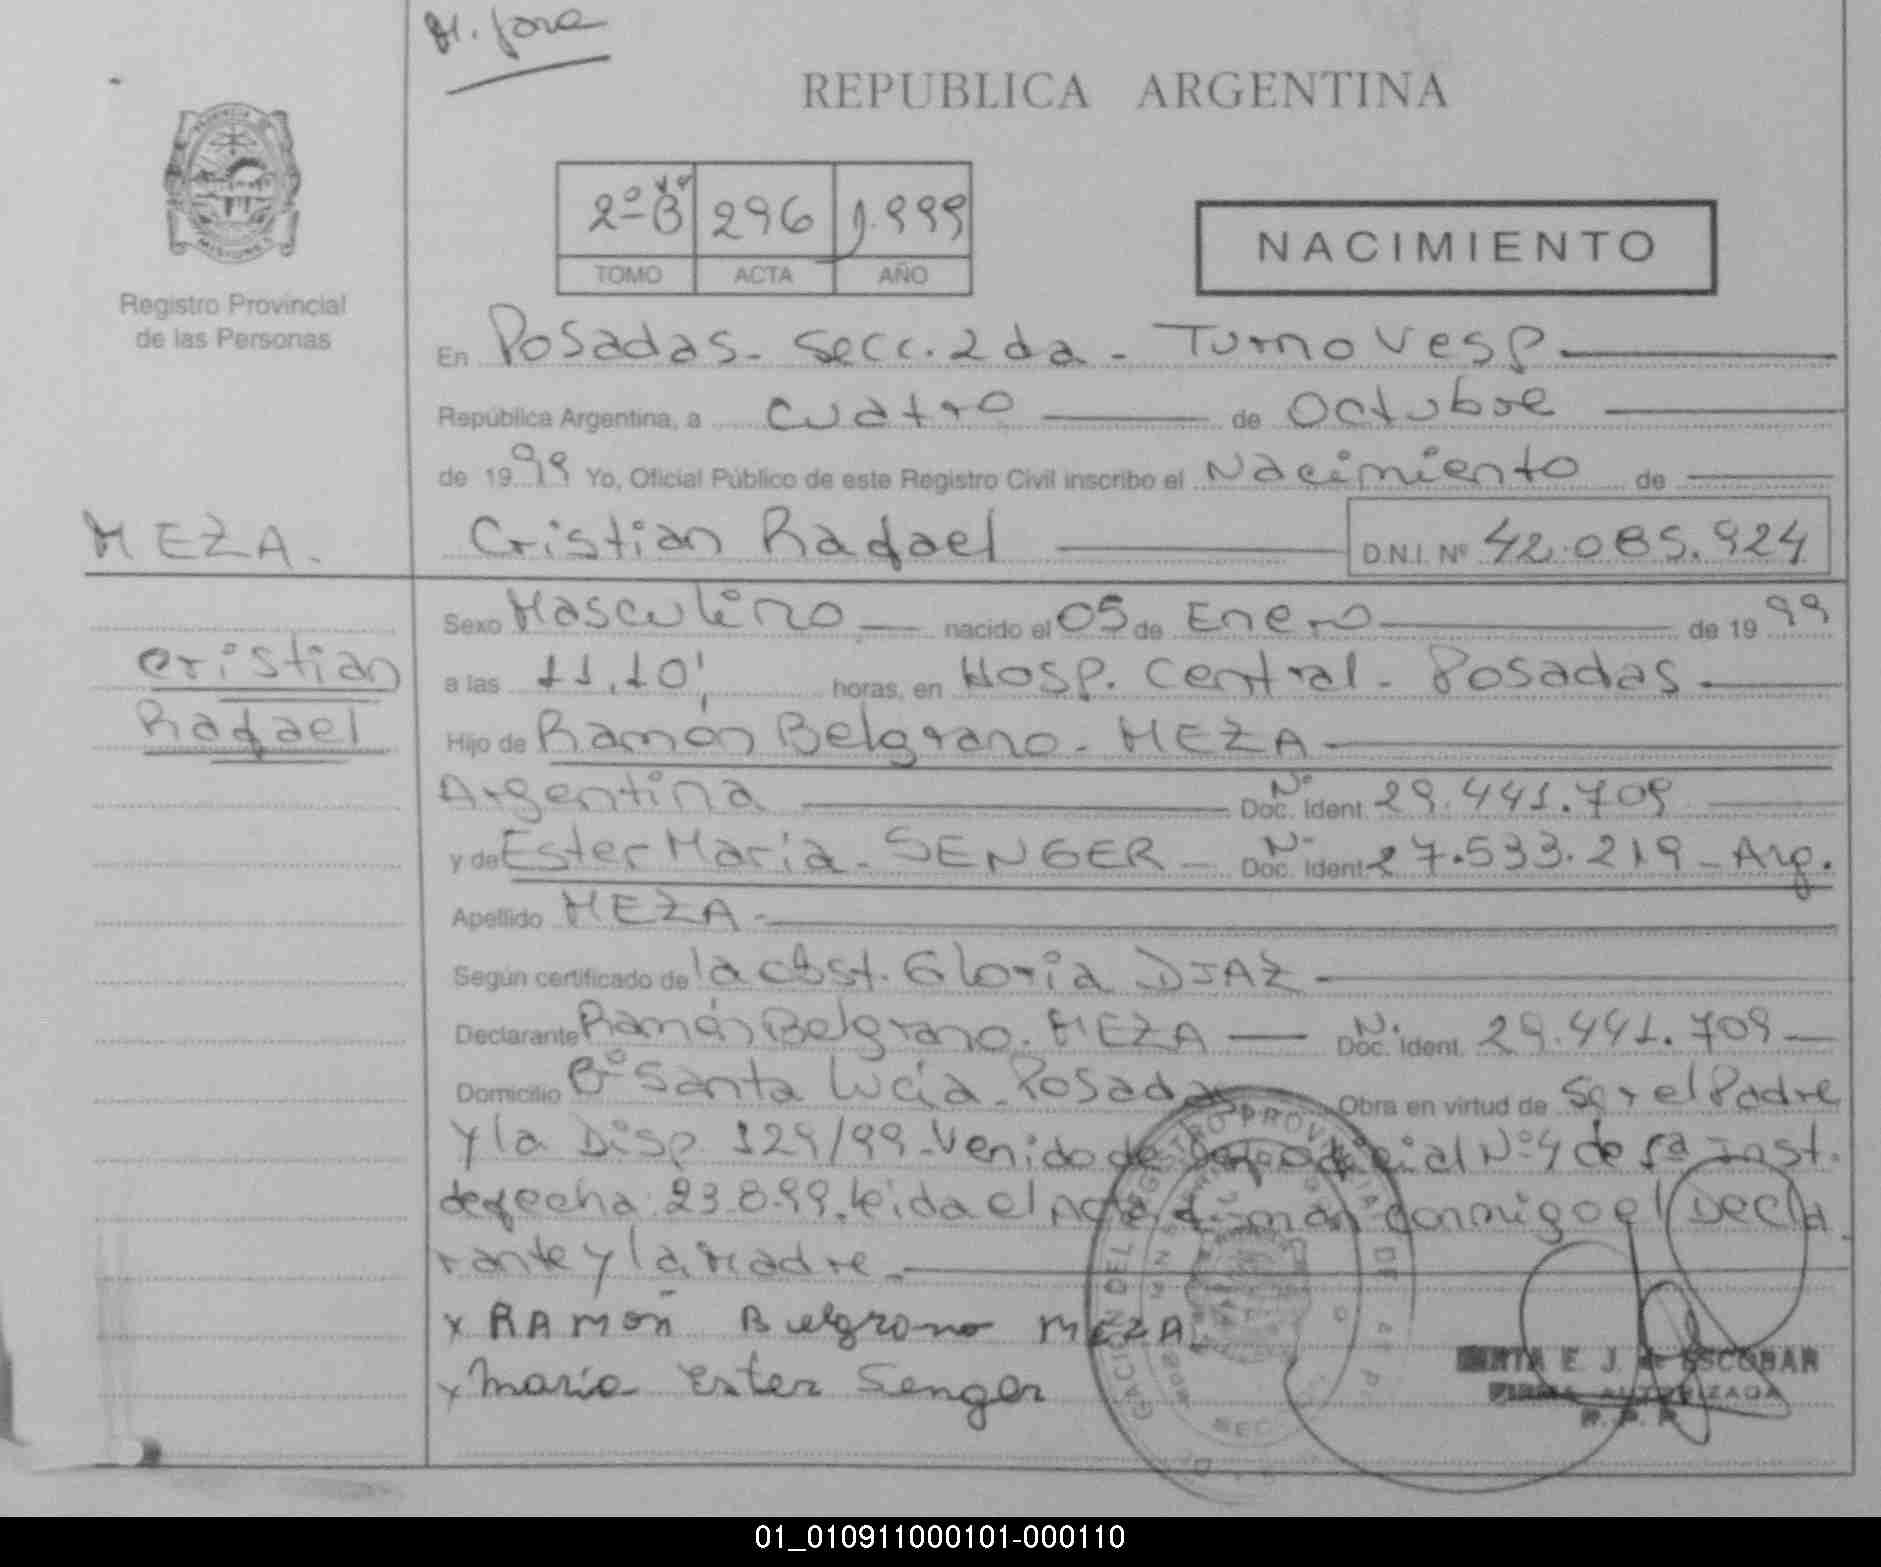 REPUBLICA ARGENTINA
2º B 296 1.999
TOMO ACTA AÑO
NACIMIENTO
Registro Provincial
de las Personas
En Posadas - Secc. 2da - Turno Vesp.
República Argentina, a cuatro de Octubre
de 1999 Yo, Oficial Público de este Registro Civil inscribo el Nacimiento de
MEZA.
Cristian Rafael D.N.I. Nº 42.085.924
Cristian
Rafael
Sexo Masculino nacido el 05 de Enero de 1999
a las 11,10' horas, en Hosp. Central - Posadas
Hijo de Ramón Belgrano - MEZA
Argentina Nº Doc. Ident. 29.441.709
y de Ester Maria - SENGER - Nº Doc. Ident. 27.533.219 - Arg.
Apellido MEZA
Según certificado de la Obst. Gloria DIAZ
Declarante Ramón Belgrano - MEZA - Nº Doc. Ident. 29.441.709
Domicilio Bº Santa Lucía - Posadas Obra en virtud de ser el Padre
y la Disp. 129/99 - Venido de Nº 4 de 1ª Inst.
de fecha 23.8.99. leida el Acta firman conmigo el Decla
rante y la Madre
x RAMÓN Belgrano MEZA
x María Ester Senger
E. J. de ESCOBAR
FIRMA AUTORIZADA
01_010911000101-000110